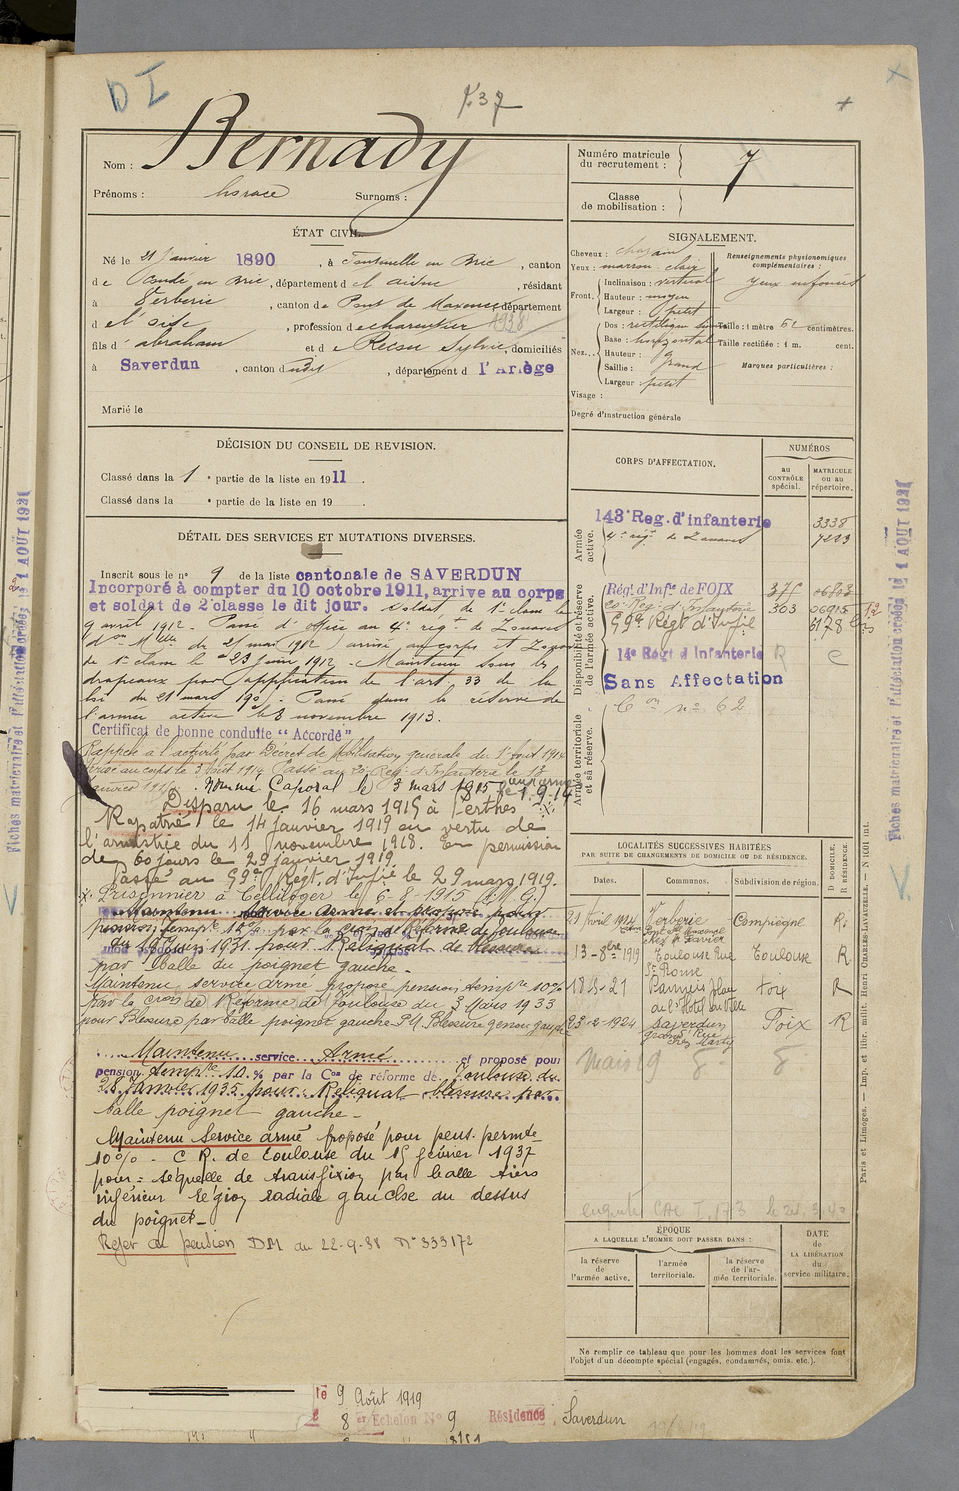 D I
P. 37
Nom : Bernady
Prénoms : horace Surnoms :
Numéro matricule
du recrutement : 7
Classe
de mobilisation :
ÉTAT CIVIL.
Né le 21 Janvier 1890, à Fontenelle en Brie, canton
de Condé en Brie, département de l'aisne, résidant
à Verberie, canton de Pont Ste Maxence département
de l'oise, profession de charcutier 1938
fils d'abraham et de Sylvie, domiciliés
à Saverdun, canton dudit, département d l'Ariège
Marié le
SIGNALEMENT.
Cheveux : chatain
Yeux : marron clair
Front. Inclinaison : vertical
Hauteur : moyen
Largeur : petit
Nez... Dos : rectiligne
Base : horizontal
Hauteur :
Saillie : grand
Largeur petit
Visage :
Degré d'instruction générale
Renseignements physionomiques
complémentaires :
yeux enfoncés
Taille : 1 mètre 62 centimètres.
Taille rectifiée : 1 m. cent.
Marques particulières :
DÉCISION DU CONSEIL DE REVISION.
Classé dans la 1 e partie de la liste en 1911.
Classé dans la e partie de la liste en 19
DÉTAIL DES SERVICES ET MUTATIONS DIVERSES.
Inscrit sous le n° 9 de la liste cantonale de SAVERDUN
Incorporé à compter du 10 octobre 1911, arrive au corps
et soldat de 2e classe le dit jour. Soldat de 1re classe le
9 avril 1912. Passé d'office au 4e régt de Zouaves
don Mlle du 21 mai 1912) arrivé au corps et Zouave
de 1re classe le 23 Juin 1912. Maintenu sous les
drapeaux par application de l'art. 33 de la
loi du 21 mars 190. Passé dans la réserve de
l'armée active le 8 novembre 1913.
Certificat de bonne conduite "Accordé"
Rappelé à l'activité par Décret de Mobilisation générale du 1er Août 1914
Arrivé au corps le 3 Août 1914 Passé au Reg. d'Infanterie le 13
Janvier 1915. Nommé Caporal le 3 mars 1915
Disparu le 16 mars 1915 à Perthes
Rapatrié le 14 Janvier 1919 en vertu de
l'armistice du 11 novembre 1918. En permission
de 60 jours le 29 Janvier 1919.
Passé au 59e Régt. d'Infie le 29 mars 1919.
Prisonnier à Celliloger le 6-8-1915 (A.M.G.)
Maintenu service armé et proposé pour
pension tempre 10% par la Cion de Réforme de Toulouse
du 19 Juin 1931 pour : Reliquat de blessure
par balle du poignet gauche.
Maintenu service armé proposé pension tempre 10%
par la cion de Réforme de Toulouse du 3 Mars 1933
pour Blessure par balle poignet gauche P.U. Blessure genou gauche
Maintenu service Armé et proposé pour
pension tempre 10 % par la Con de réforme de Toulouse du
28 Janvier 1935 pour : Reliquat blessure par
balle poignet gauche -
Maintenu Service armé proposé pour pens. permte
10% - C R. de Toulouse du 15 février 1937
pour : Séquelle de transfixion par balle tiers
inférieur région radiale gauche au dessus
du poignet -
Rejet de pension DM du 22-9-38 N° 333172
CORPS D'AFFECTATION.
NUMÉROS
au
CONTRÔLE
spécial.
MATRICULE
ou au
répertoire.
Armée
active.
143e Reg. d'infanterie 3338
4e régt de Zouaves
Disponibilité et réserve
de l'armée active.
Rég. d'Infie de FOIX
Reg. d'Infanterie 363 06915
59e Régt d'Infie 6178 bis
14e Régt d'Infanterie R C
Sans Affectation
Armée territoriale
et sa réserve.
Con n° 62
LOCALITÉS SUCCESSIVES HABITÉES
PAR SUITE DE CHANGEMENTS DE DOMICILE OU DE RÉSIDENCE.
Dates. Communes. Subdivision de région. D DOMICILE. R RÉSIDENCE.
21 Avril 1914 Verberie Compiègne R.
Pont Ste Maxence
13-8bre 1919 Toulouse Rue Toulouse R
St Rome
18-5-21 Pamiers Foix R
23-2-1924 Saverdun Foix R
Grand Rue
chez Marty
Mars 19
ÉPOQUE
A LAQUELLE L'HOMME DOIT PASSER DANS :
la réserve
de
l'armée active.
l'armée
territoriale.
la réserve
de l'ar-
mée territoriale.
DATE
de
LA LIBÉRATION
du
service militaire.
Ne remplir ce tableau que pour les hommes dont les services font
l'objet d'un décompte spécial (engagés, condamnés, omis, etc.).
Paris et Limoges. — Imp. et libr. milit. Henri CHARLES-LAVAUZELLE. — N° 1001 int.
Fiches matriculaire et d'affectation créées le 1 AOÛT 1921
Fiches matriculaire et d'affectation créées le 1 AOÛT 1921
le 9 Août 1919
8 er Échelon N° 9 Résidence : Saverdun